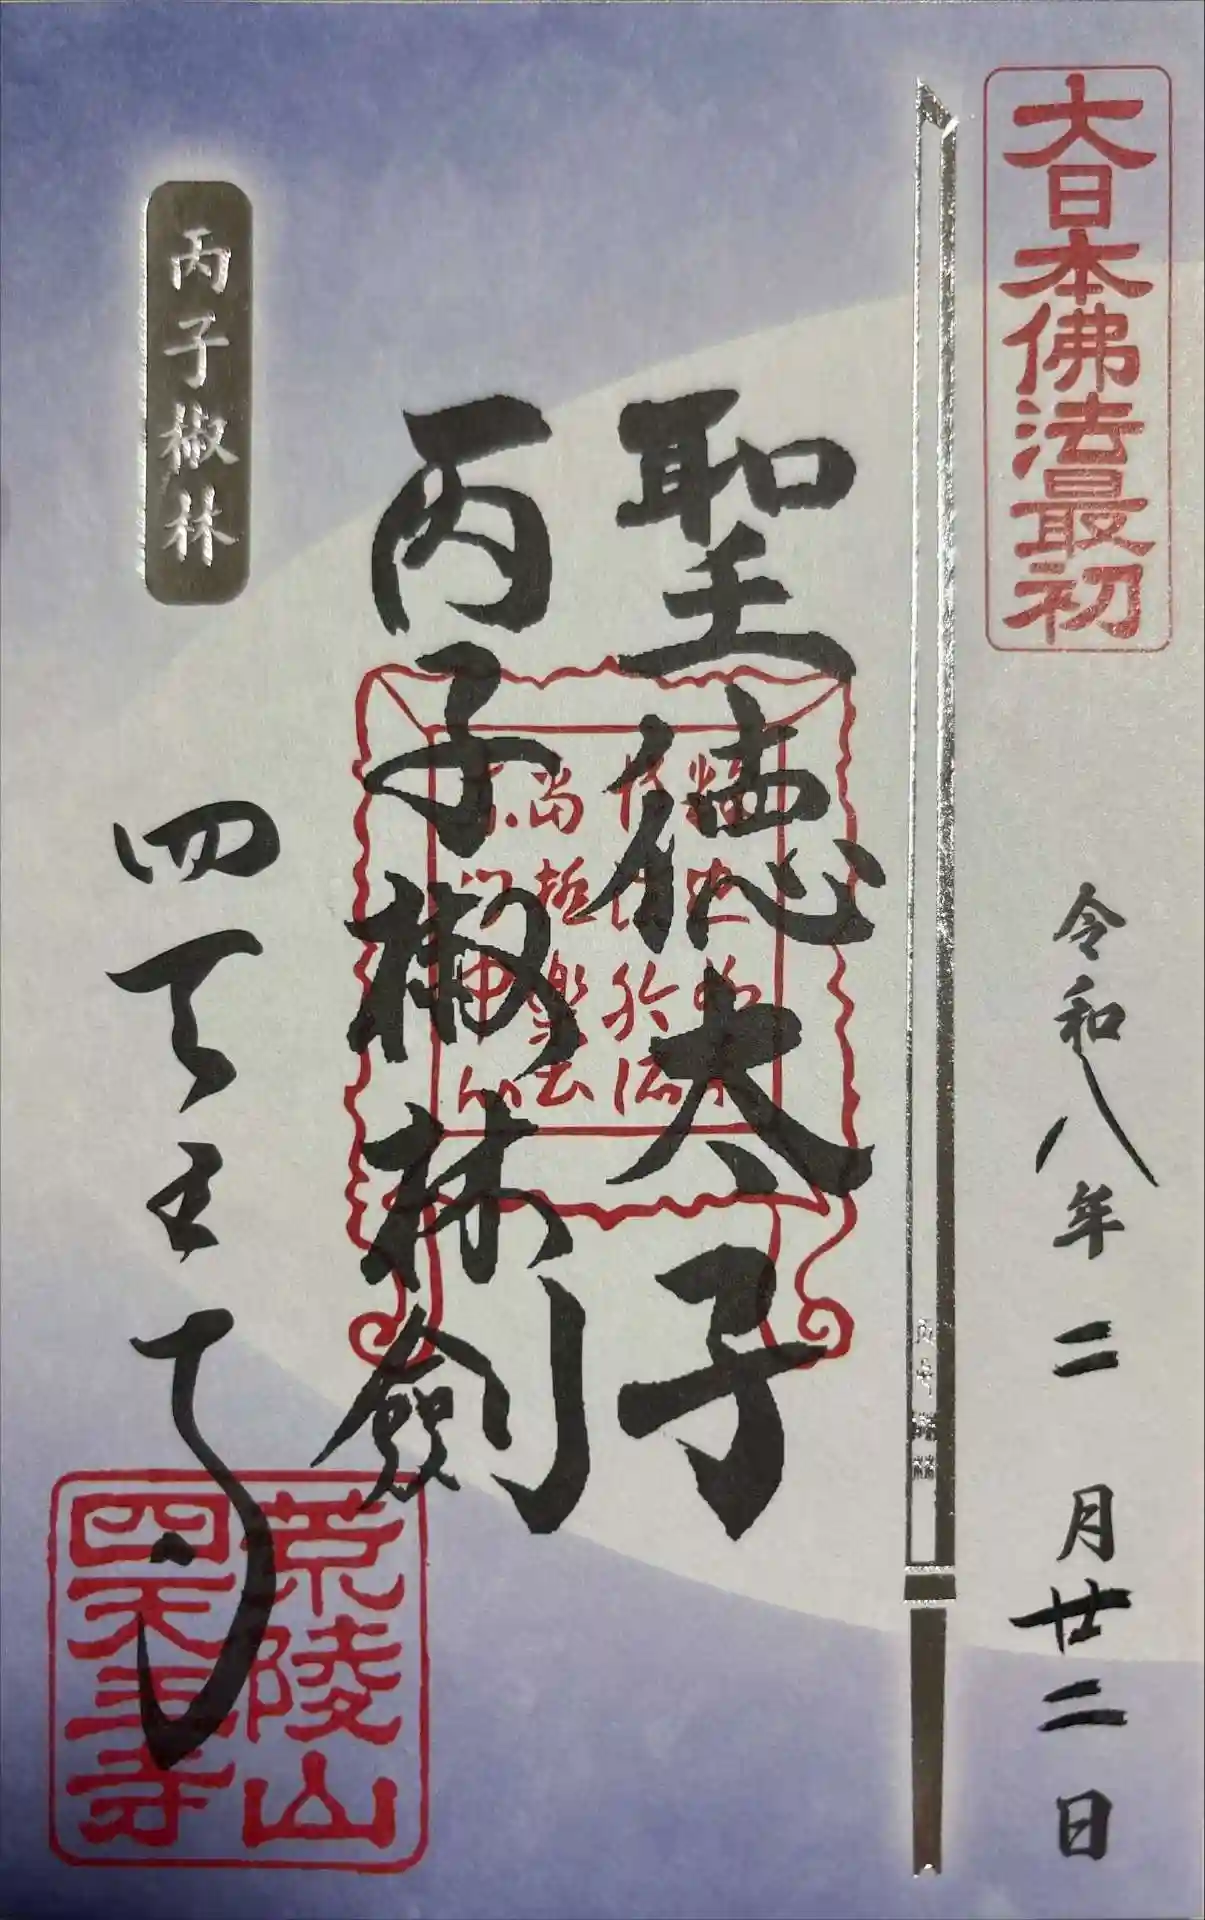 大日本佛法最初
令和八年二月廿二日
丙子椒林
聖徳太子
丙子椒林劍
四天王寺
丙子椒林
荒陵山
四天王寺